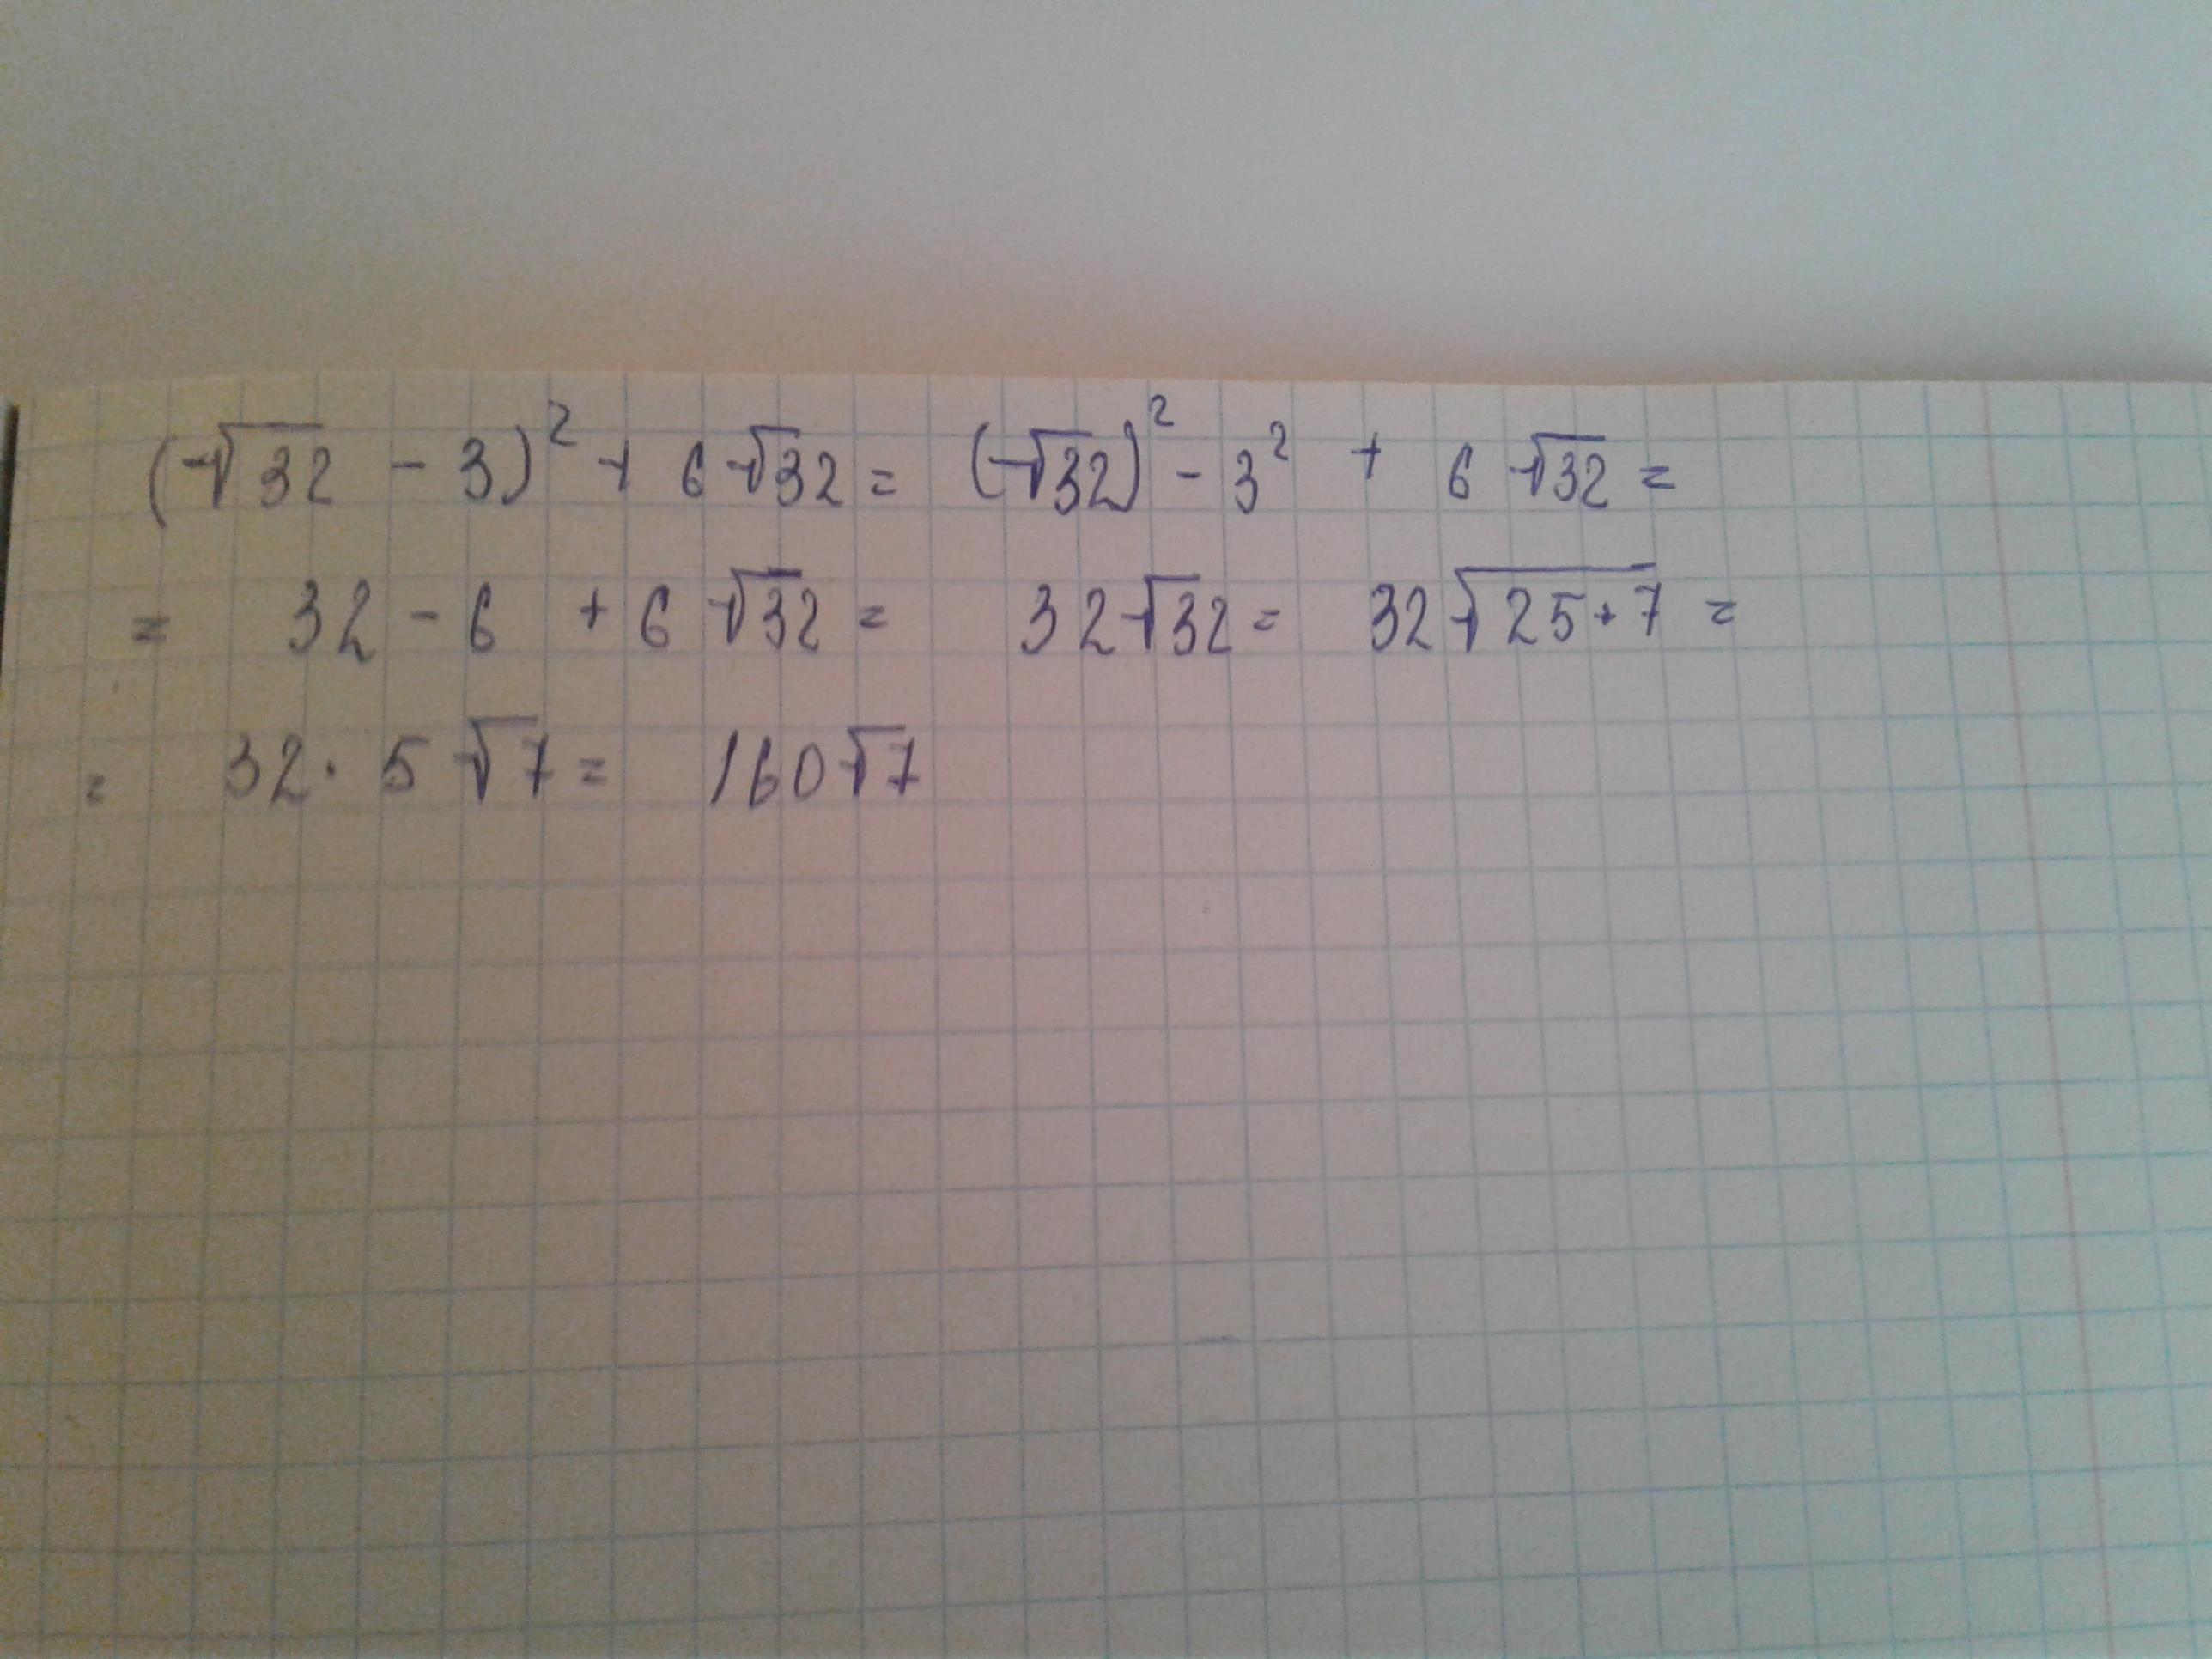 (√32 - 3)² + 6√32 = (√32)² - 3² + 6√32 =
= 32 - 6 + 6√32 = 32√32 = 32√(25+7) =
= 32 · 5√7 = 160√7